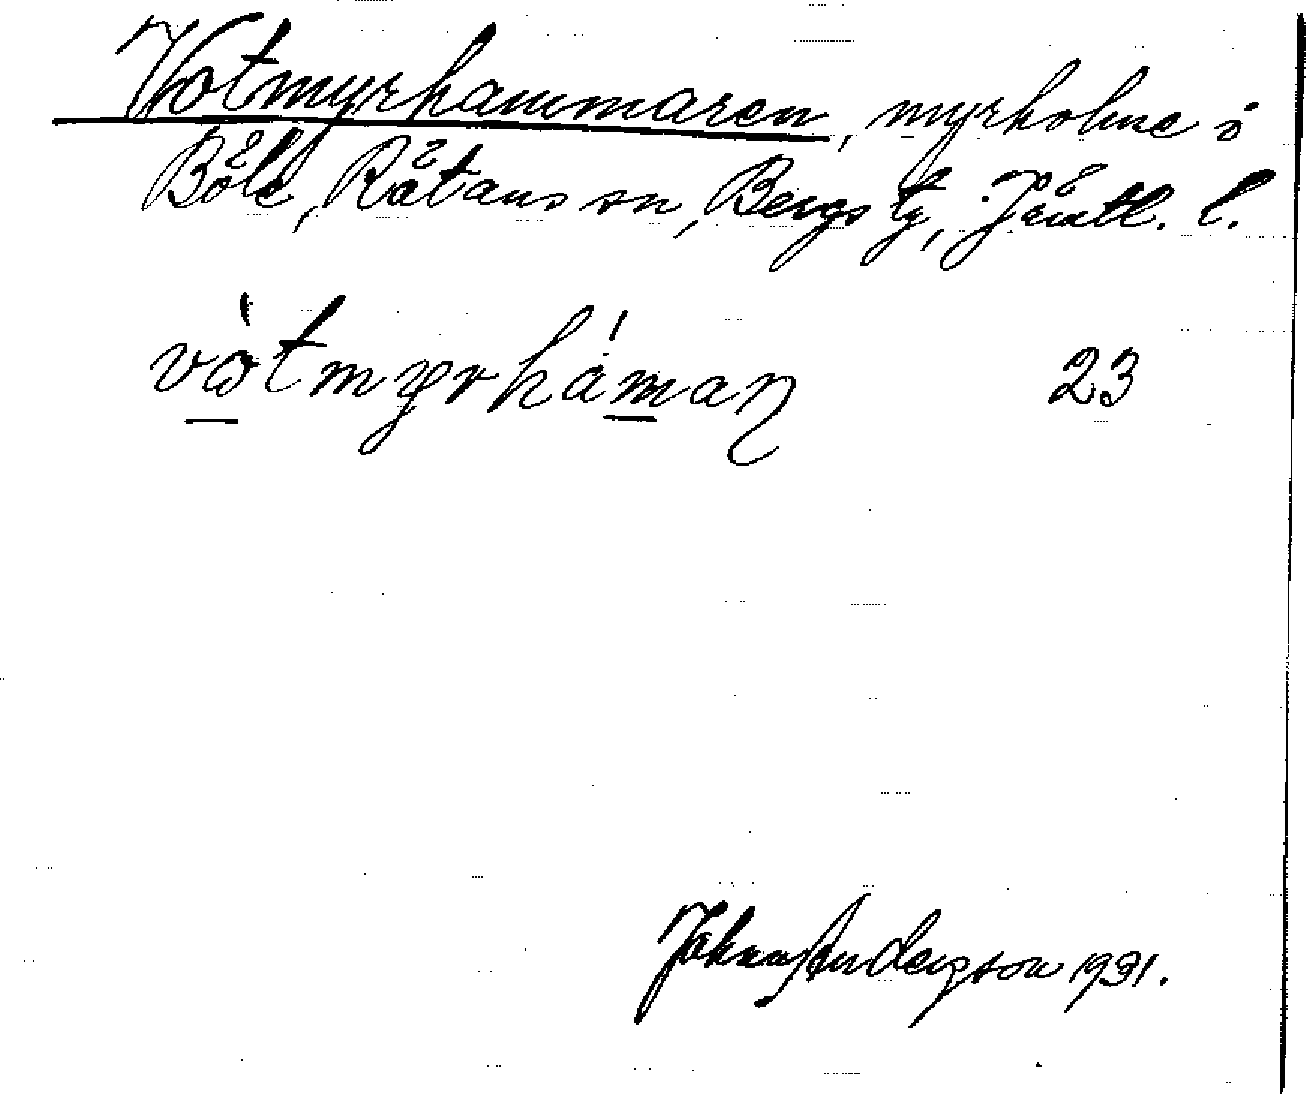 Votmyrhammaren, myrholme i
Böle, Rätans sn, Bergs tg, Jämtl. l.
vòtmyrháman 23
Johan Anderzson 1931.